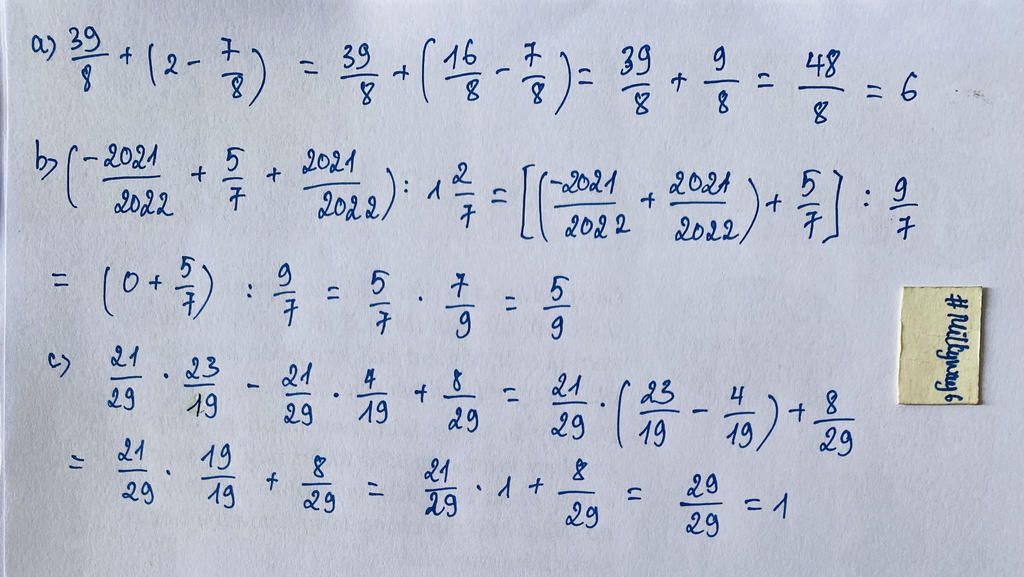 a) 39/8 + (2 - 7/8) = 39/8 + (16/8 - 7/8) = 39/8 + 9/8 = 48/8 = 6
b) (-2021/2022 + 5/7 + 2021/2022) : 1 2/7 = [(-2021/2022 + 2021/2022) + 5/7] : 9/7
= (0 + 5/7) : 9/7 = 5/7 . 7/9 = 5/9
c) 21/29 . 23/19 - 21/29 . 4/19 + 8/29 = 21/29 . (23/19 - 4/19) + 8/29
= 21/29 . 19/19 + 8/29 = 21/29 . 1 + 8/29 = 29/29 = 1
#Milkyway6